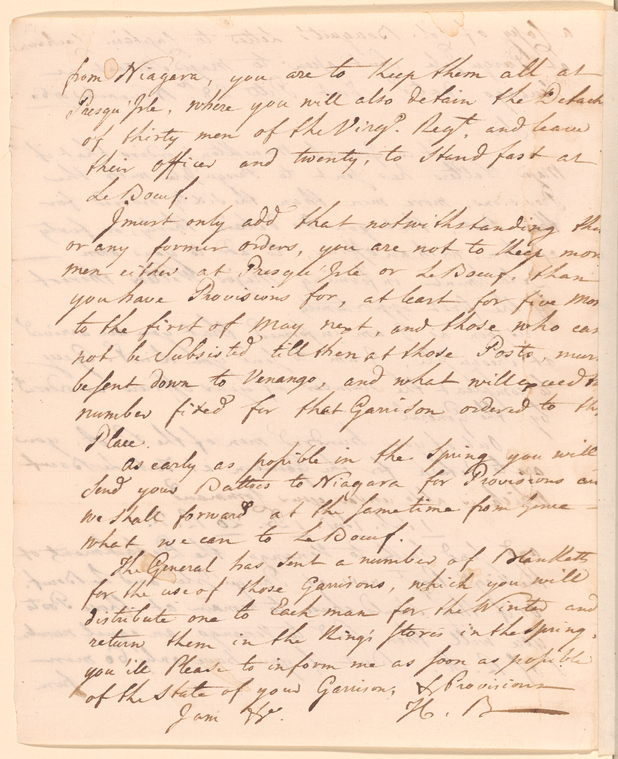 from Niagara, you are to Keep them all at
Presqu'Isle, where you will also detain the Detach
of thirty men of the Virg.ª Reg.t, and leave
their officer and twenty, to Stand fast at
Le Boeuf.
I must only add that notwithstanding the
or any former orders, you are not to Keep mor
men either at Presqu'Isle or Le Boeuf, than
you have Provisions for, at least for five Mon
to the first of May next, and those who can
not be Subsisted till then at those Posts, mus
be sent down to Venango, and what will exceed
number fixed for that Garrison ordered to th
Place.
As early as possible in the Spring you will
Send your Batteos to Niagara for Provisions an
we shall forward at the same time from
what we can to Le Boeuf.
The General has sent a number of Blanketts
for the use of those Garrisons, which you will
distribute one to Each man for the Winter and
return them in the Kings Stores in the Spring,
you'ill Please to inform me as soon as possible
of the State of your Garrison, & Provisions
I am &c. H. B